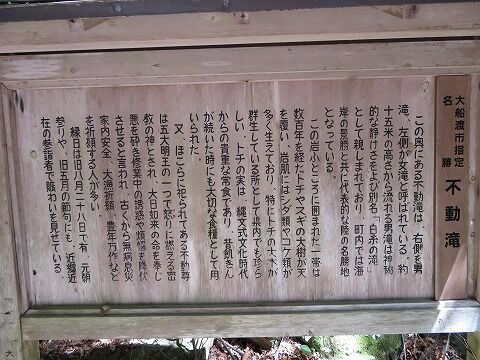 大船渡市指定
名勝 不動滝
この奥にある不動滝は、右側を男
滝、左側が女滝と呼ばれている。約
十五米の高さから流れる男滝は神秘
的な静けさをよび別名、「白糸の滝」
として親しまれており、町内では海
岸の景勝と共に代表的な内陸の名勝地
となっている。
この岩ふところに囲まれた一帯は
数百年を経たトチやスギの大樹が天
を覆い、岩肌にはシダ類やコケ類が
多く生えており、特にトチの大木が
群生している所として県内でも珍ら
しい。トチの実は、縄文式文化時代
からの貴重な常食であり、昔飢きん
が続いた時にも大切な食糧として用
いられた。
又、ほこらに祀られてある不動尊
は五大明王の一つで怒りに燃える密
教の神とされ、大日如来の命を奉じ
悪を砕き修業中の誘惑や煩悩を降伏
させると言われ、古くから無病息災
家内安全、大漁祈願、豊年万作など
を祈願する人が多い。
縁日は旧八月二十八日で有、元朝
参りや、旧五月の節句にも、近郷近
在の参詣者で賑わいを見せている。